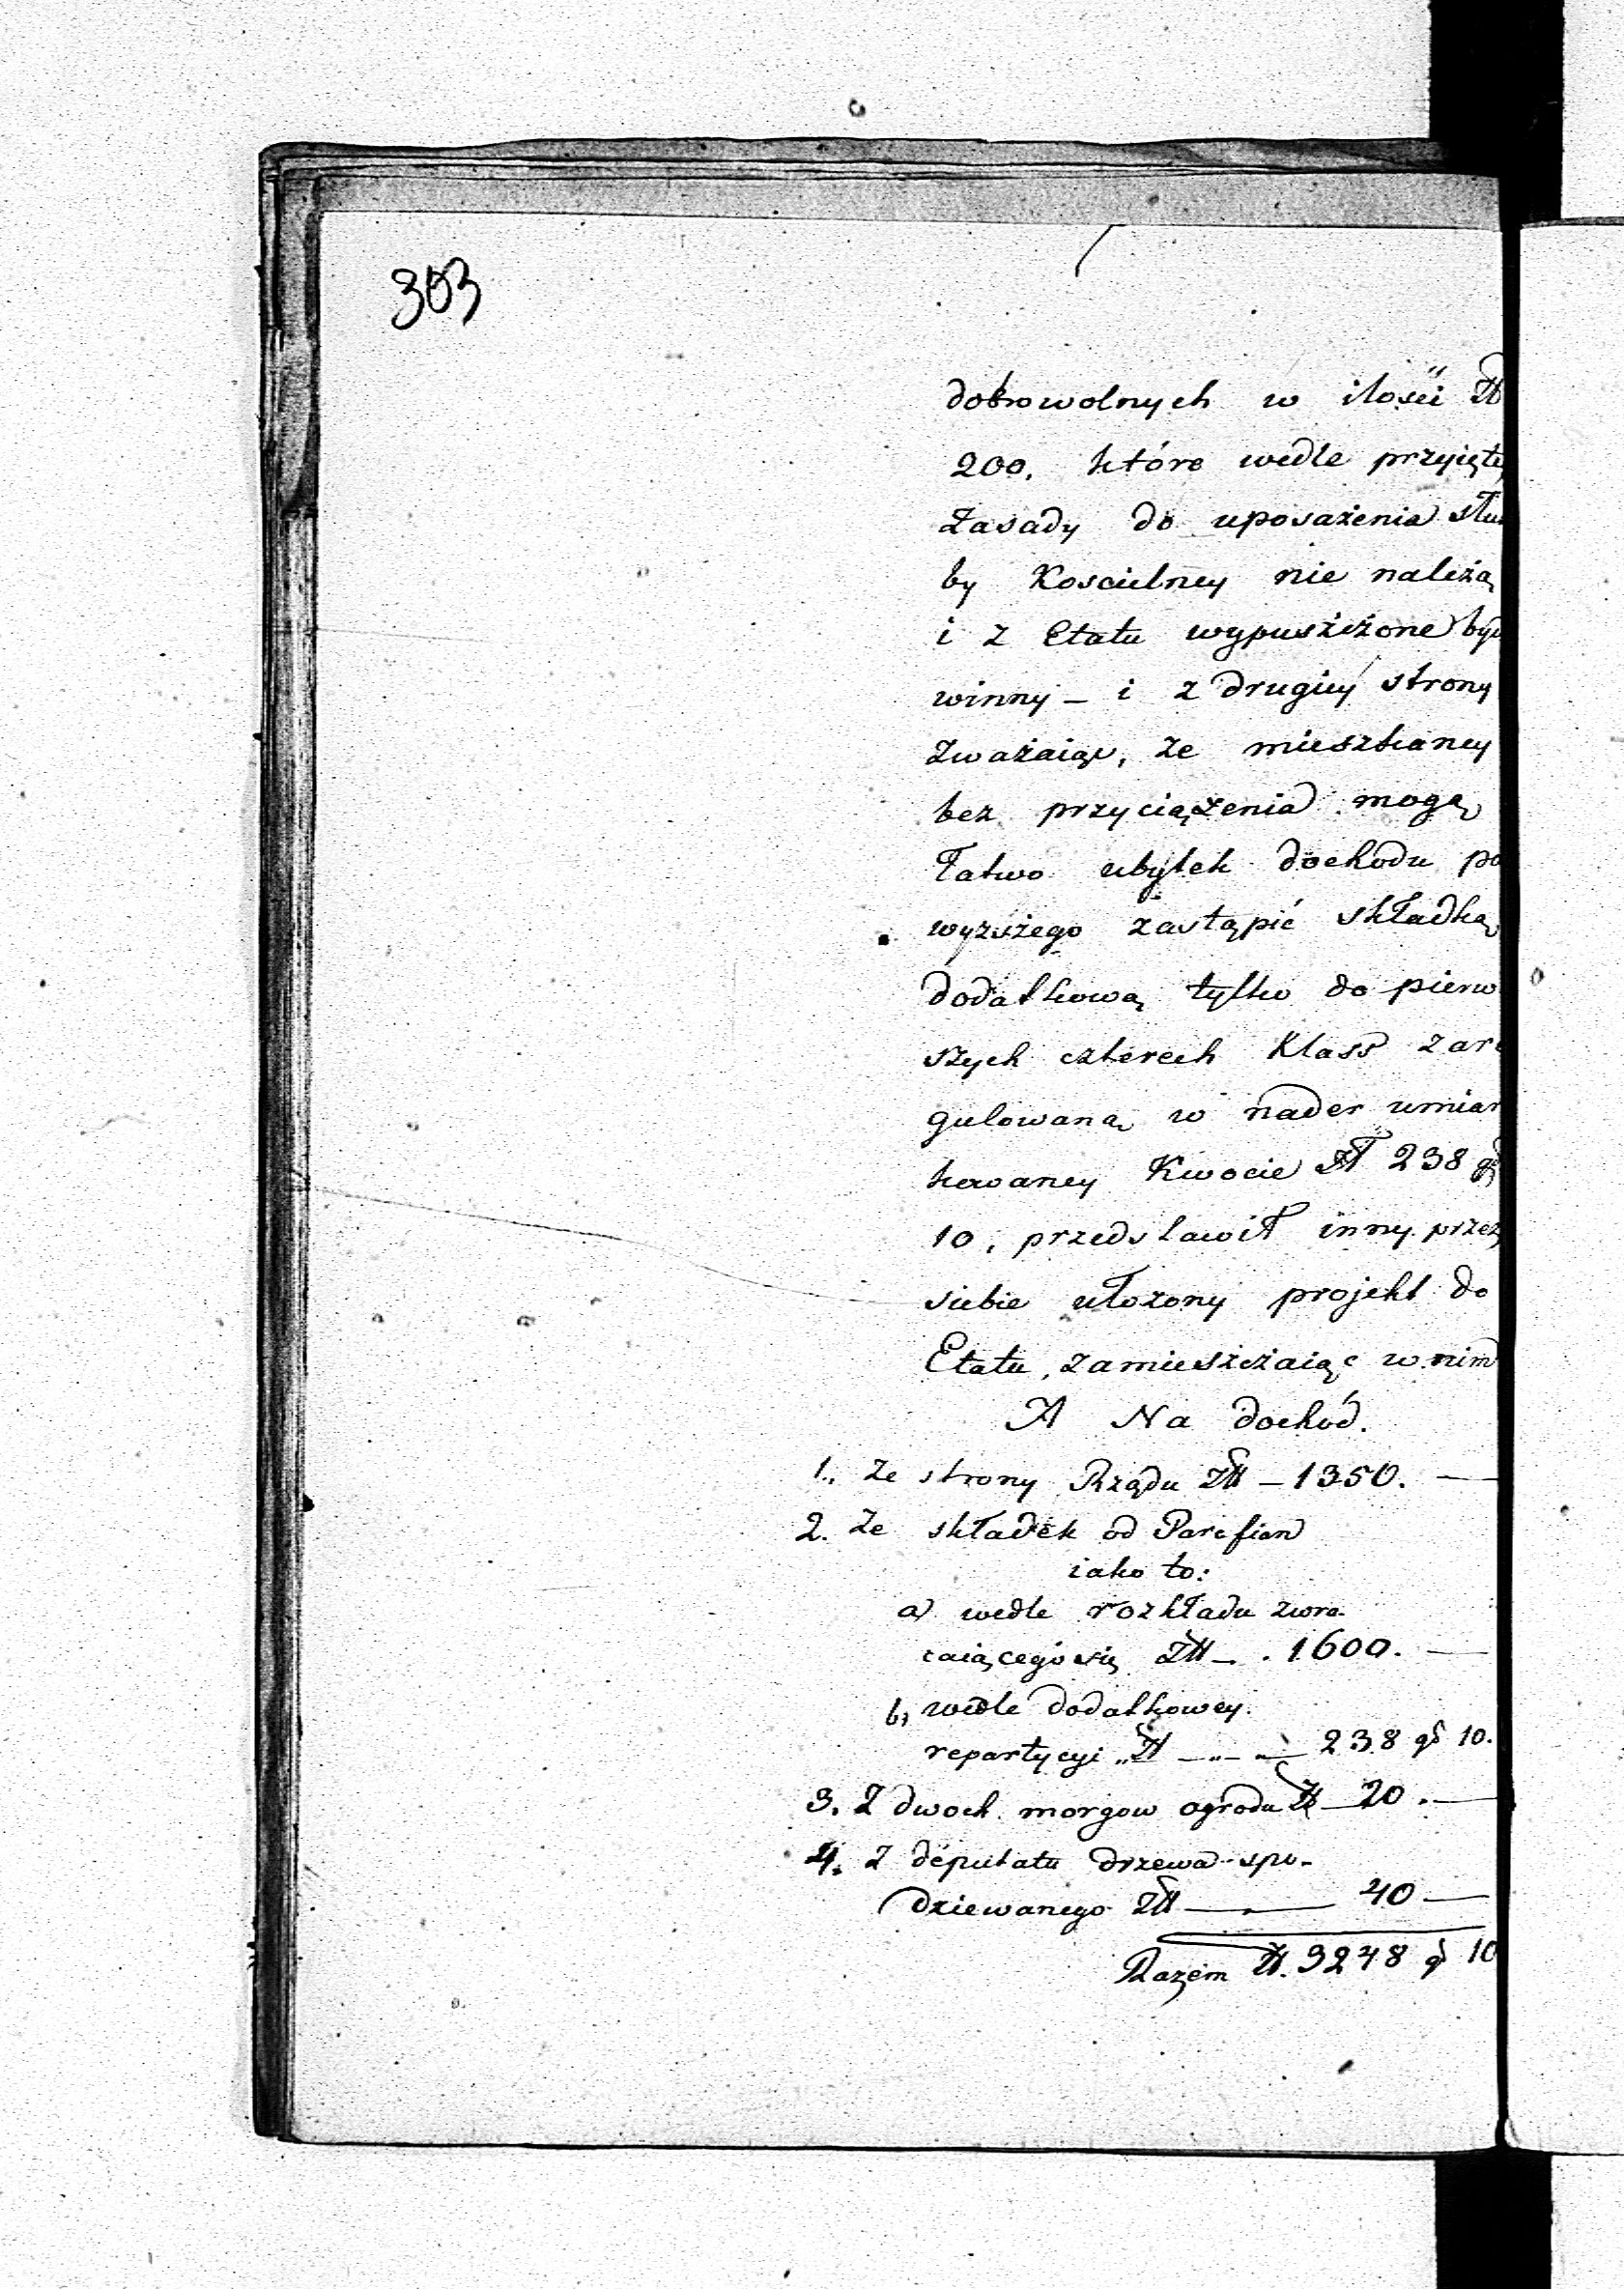 303
dobrowolnych w ilości Zł
200, które wedle przyięte
Zasady do uposażenia słu
by Koscielney nie należą
i z Etatu wypuszczone być
winny – i z drugiey strony
Zważaiąc, że mieszkancy
bez przyciążenia mogą
łatwo ubytek dochodu po
wyższego zastąpić składką
dodatkową tylko do pierw
szych czterech Klass zare
gulowaną w nader umiar
kowaney Kwocie Zł 238 gr
10, przedstawił inny przez
siebie ułożony projekt do
Etatu, zamieszczaiąc w nim
A Na dochód.
1., Ze strony Rządu Zł – 1350. —
2. Ze składek od Parafian
iako to:
a) wedle rozkładu zwra-
caiącego się Zł – . 1600. —
b, wedle dodatkowey
repartycyi „ Zł — „ — 238 gr 10.
3. Z dwoch morgow ogrodu Zł 20. —
4. Z deputatu drzewa spo-
dziewanego Zł — 40 —
Razem Zł. 3248 gr 10